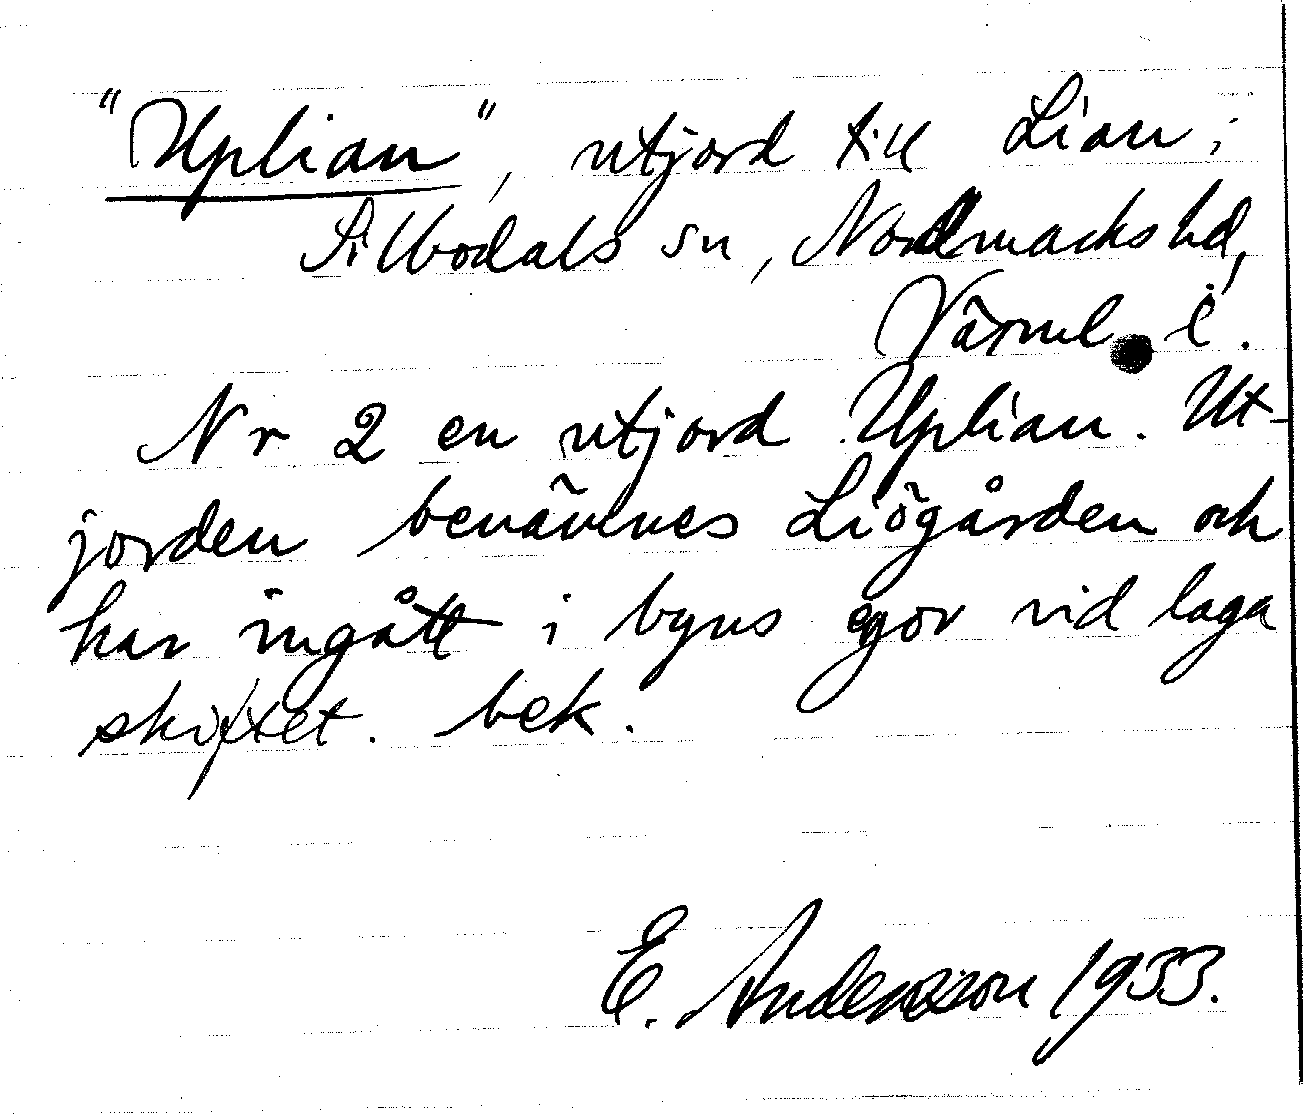 "Uplian", utjord till Lian i
Silbodals sn, Nordmarks hd,
Värml. l.
Nr 2 en utjord Uplian. Ut-
jorden benämnes Liögården och
har ingått i byns egor vid laga
skiftet. bek.
E. Andersson 1933.